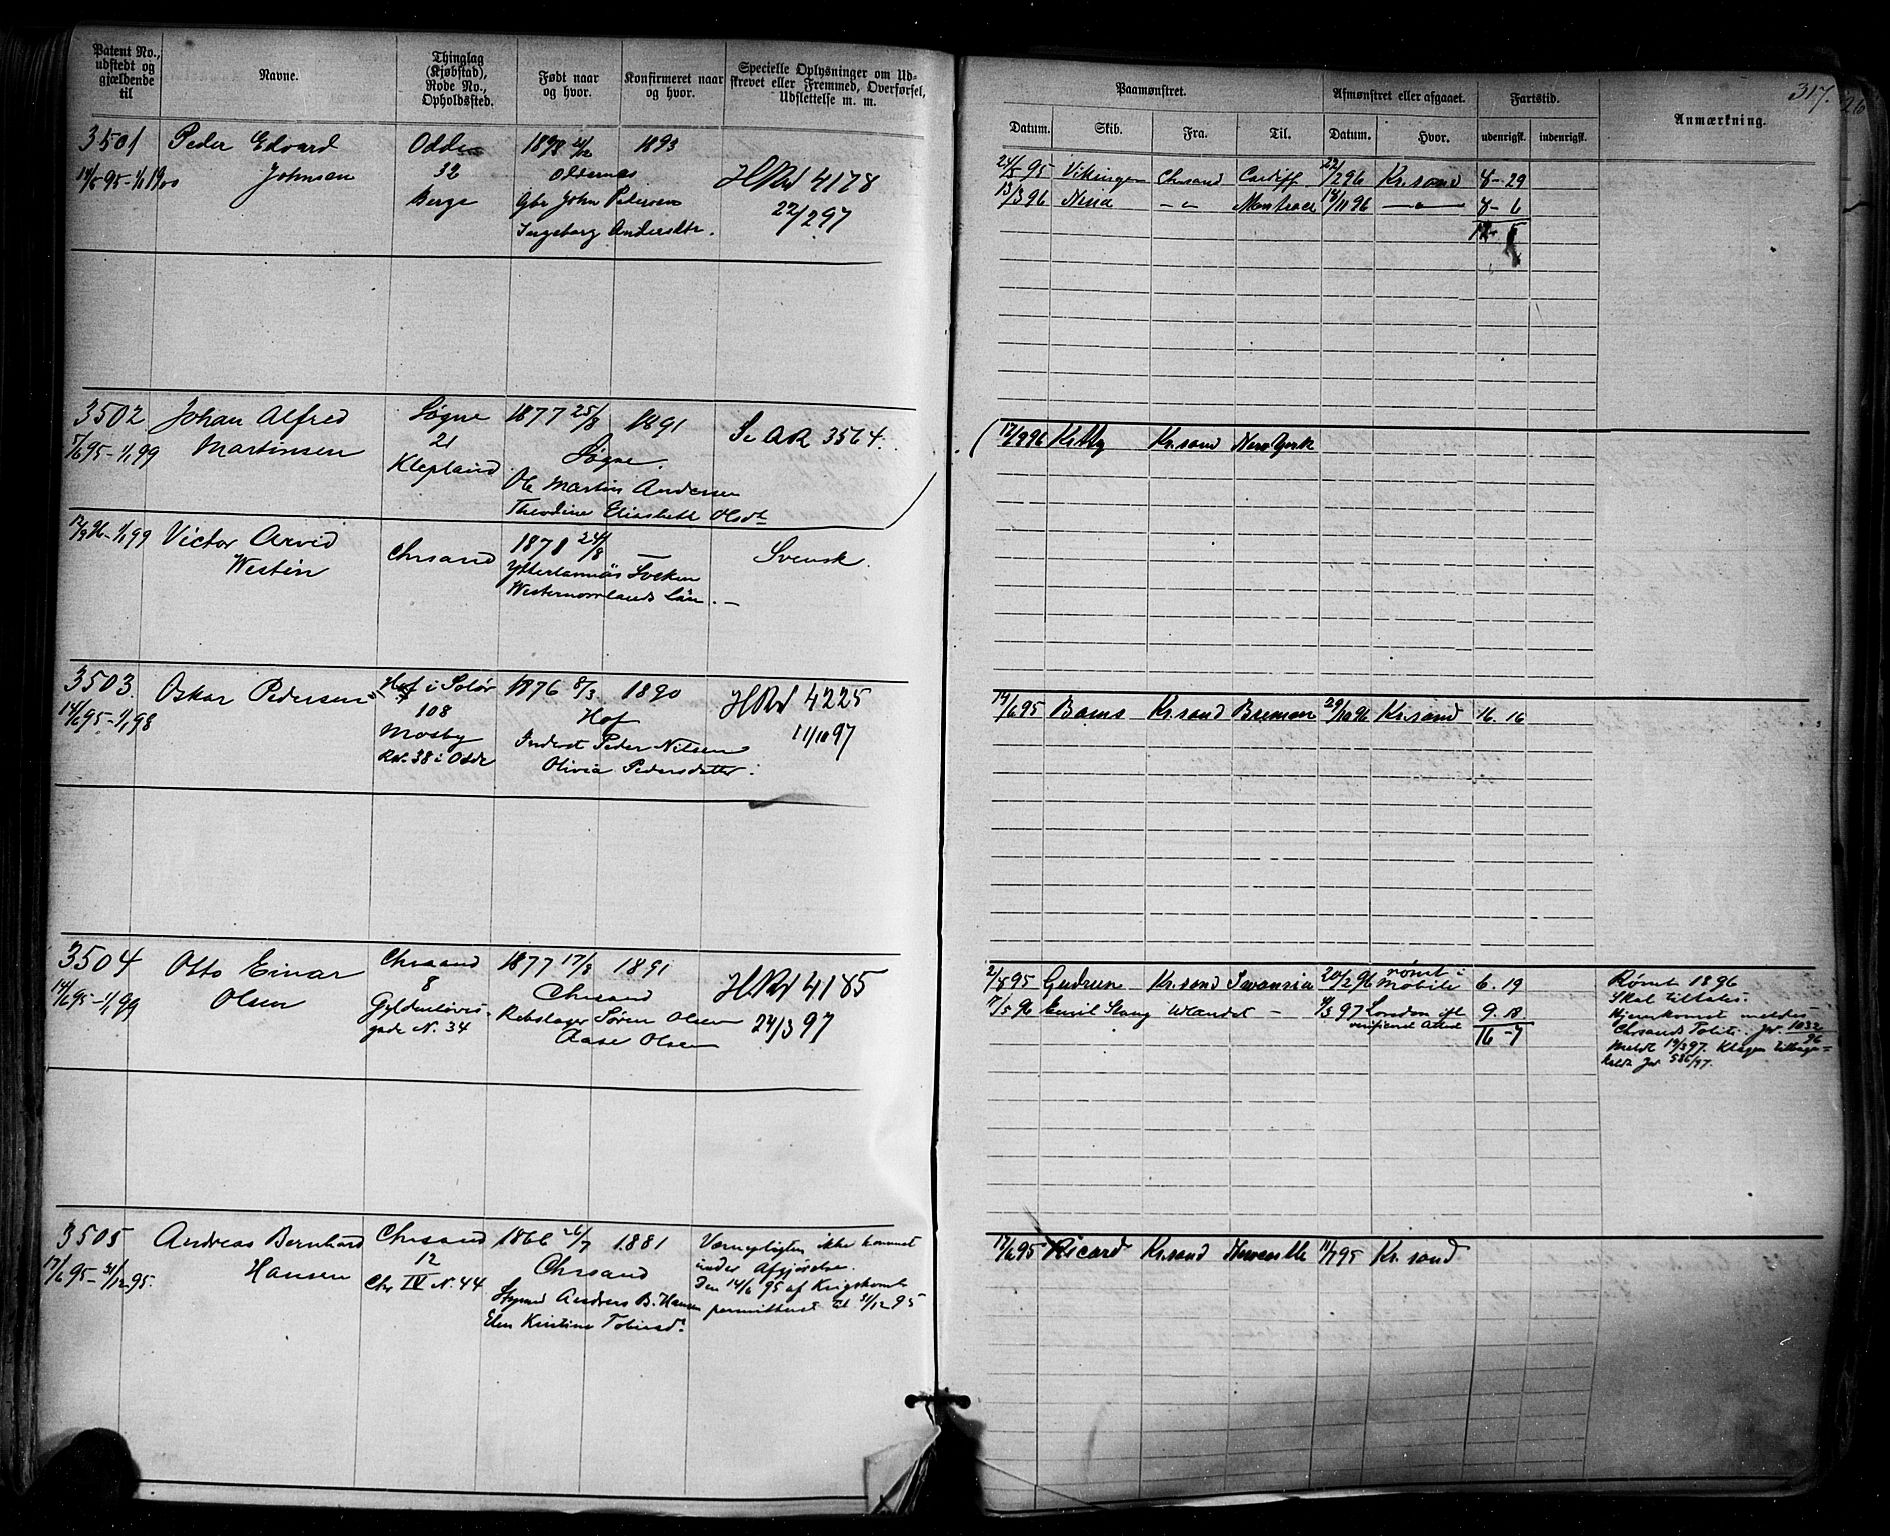 Patent No., udstedt og gjældende til
Navne.
Thinglag (Kjøbstad), Rode No., Opholdssted.
Født naar og hvor.
Konfirmeret naar og hvor.
Specielle Oplysninger om Udskrevet eller Fremmed, Overførsel, Udslettelse m. m.
Paamønstret.
Afmønstret eller afgaaet.
Fartstid.
Anmærkning.
317.
Datum. Skib. Fra. Til. Datum. Hvor. udenrigsk. indenrigsk.
3501 Peder Edvard Odde 1893
Johnsen 32 Oddernes HRul 4178
Berge Gbr John Petersen 22/2 97
Ingeborg Andersdtr.
24/5 95 Vikingen Chrsand Cardiff 22/2 96 Kr.sand 8-29
13/3 96 Ninia -"- 14/11 96 -"- 8-6
3502 Johan Alfred Søgne 1877 25/8 1891 Se AR 3564.
5/6 95-1/1 99 Martinsen 21 Søgne.
Klepland Ole Martin Andersen
Theodine Elisabeth Olsdt
12/9 96 Kitty Kr.sand New York
12/9 96-1/1 99 Victor Arvid Chrsand 1878 24/8 — Svensk.
Westin Ytterlannäs Socken
Westernorrlands Län. -
3503. Oskar Pedersen Hof i Solør 1876 8/3. 1890 HRul 4225
14/6 95-1/1 98 108 Hof 11/10 97
Mosby Inderst Peder Nilsen
Rd. 38 i Odde Olivia Pedersdatter.
14/6 95 Kr.sand Bremen 29/10 96 Kr.sand 16. 16
3504 Otto Einar Chrsand 1877 17/8 1891 HRul 4185
14/6 95-1/1 99 Olsen 8 Chrsand 24/3 97
Gyldenløves- Rebslager Søren Olsen
gade N. 34 Aase Olsen
2/8 95 Gudrun Kr.sand Swansea 20/2 96 rømt i Mobile 6. 19
7/5 96 Emil Stang Udlandet - 4/3 97 London ifl 9. 18
verificeret Attest 16-7
Rømt 1896
Skal tiltales.
Hjemkomst meldes
Chrsands Politi. Jr. 1032/96
Meldt 19/3 97. Klagen tilbage=
kaldt Jr 586/97.
3505 Andreas Bernhard Chrsand 1866 26/7 1881
17/6 95-31/12 95. Hansen 12 Chrsand
Chr IV N. 44 Andreas B. Hansen
Elen Kristine Tobiasd.
Værnepligten ikke kommet
under Afgjørelse.
Den 14/6 95 af Krigskomt
permitteret til 31/12 95
17/6 95 Ricard Kr.sand Newcastle 11/7 95 Kr.sand